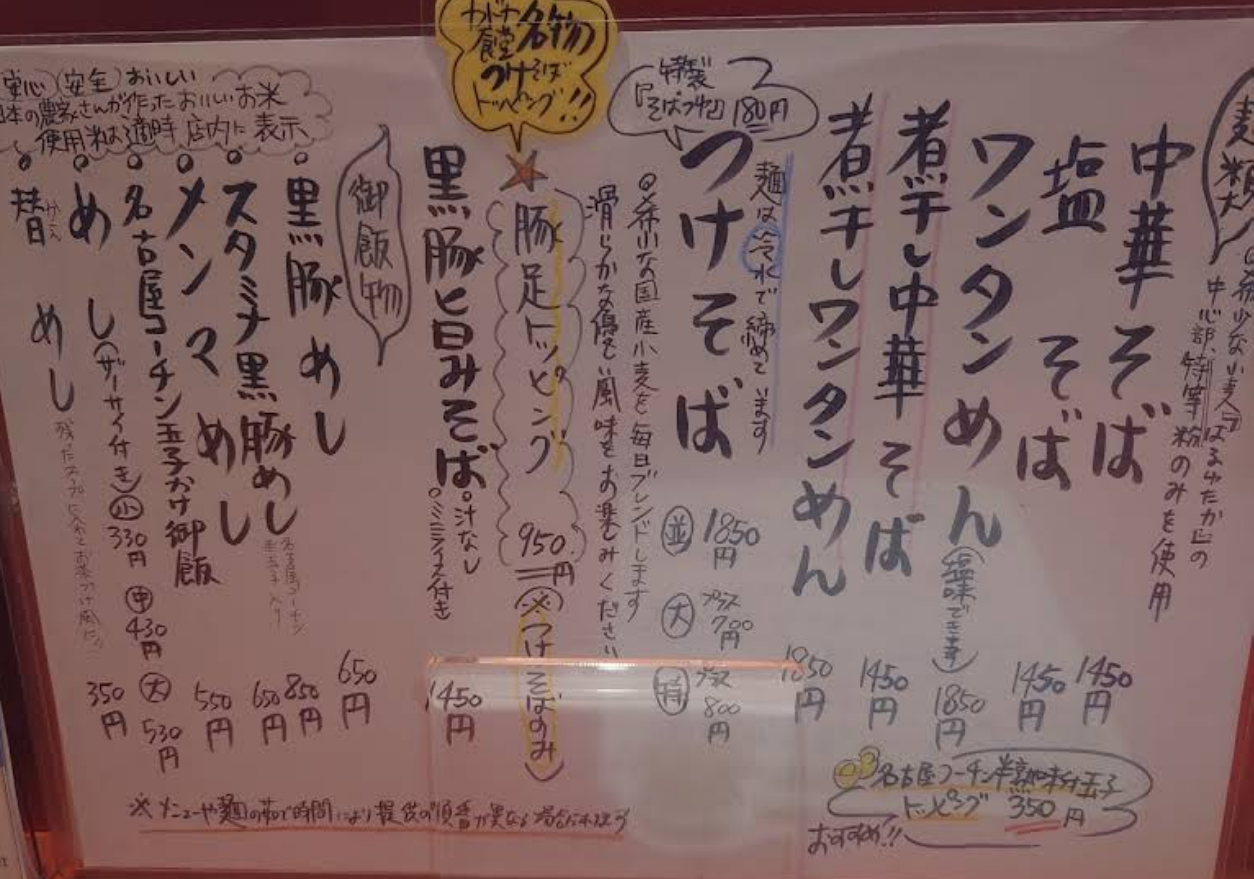 麦粉
の希少な小麦『はるゆたか』の
中心部、特等粉のみを使用
中華そば 1450円
塩そば 1450円
ワンタンめん(塩味でき〼) 1850円
煮干し中華そば 1450円
煮干しワンタンめん 1850円
特製
『そばつゆ』180円
麺は冷水で締めています
つけそば
並 1850円
大 プラス 700円
特 プラス 800円
◎希少な国産小麦を毎日ブレンドします
滑らかな優しい風味をお楽しみください
カドヤ
食堂名物
つけそば
トッピング!!
豚足トッピング 950円
(※つけそばのみ)
黒豚旨みそば 1450円
・汁なし
・ミニライス付き
御飯物
黒豚めし 650円
スタミナ黒豚めし 850円
名古屋コーチン
メンマめし 650円
名古屋コーチン玉子かけ御飯 550円
めし(ザーサイ付き) 小 330円 中 430円 大 530円
替めし 350円
残ったスープに
お茶づけ風に
安心(安全)おいしい
日本の農家さんが作ったおいしいお米
使用米は適時店内に表示
名古屋コーチン半熟味付玉子
トッピング 350円
おすすめ!!
※メニューや麺の茹で時間により提供の順番が異なる場合